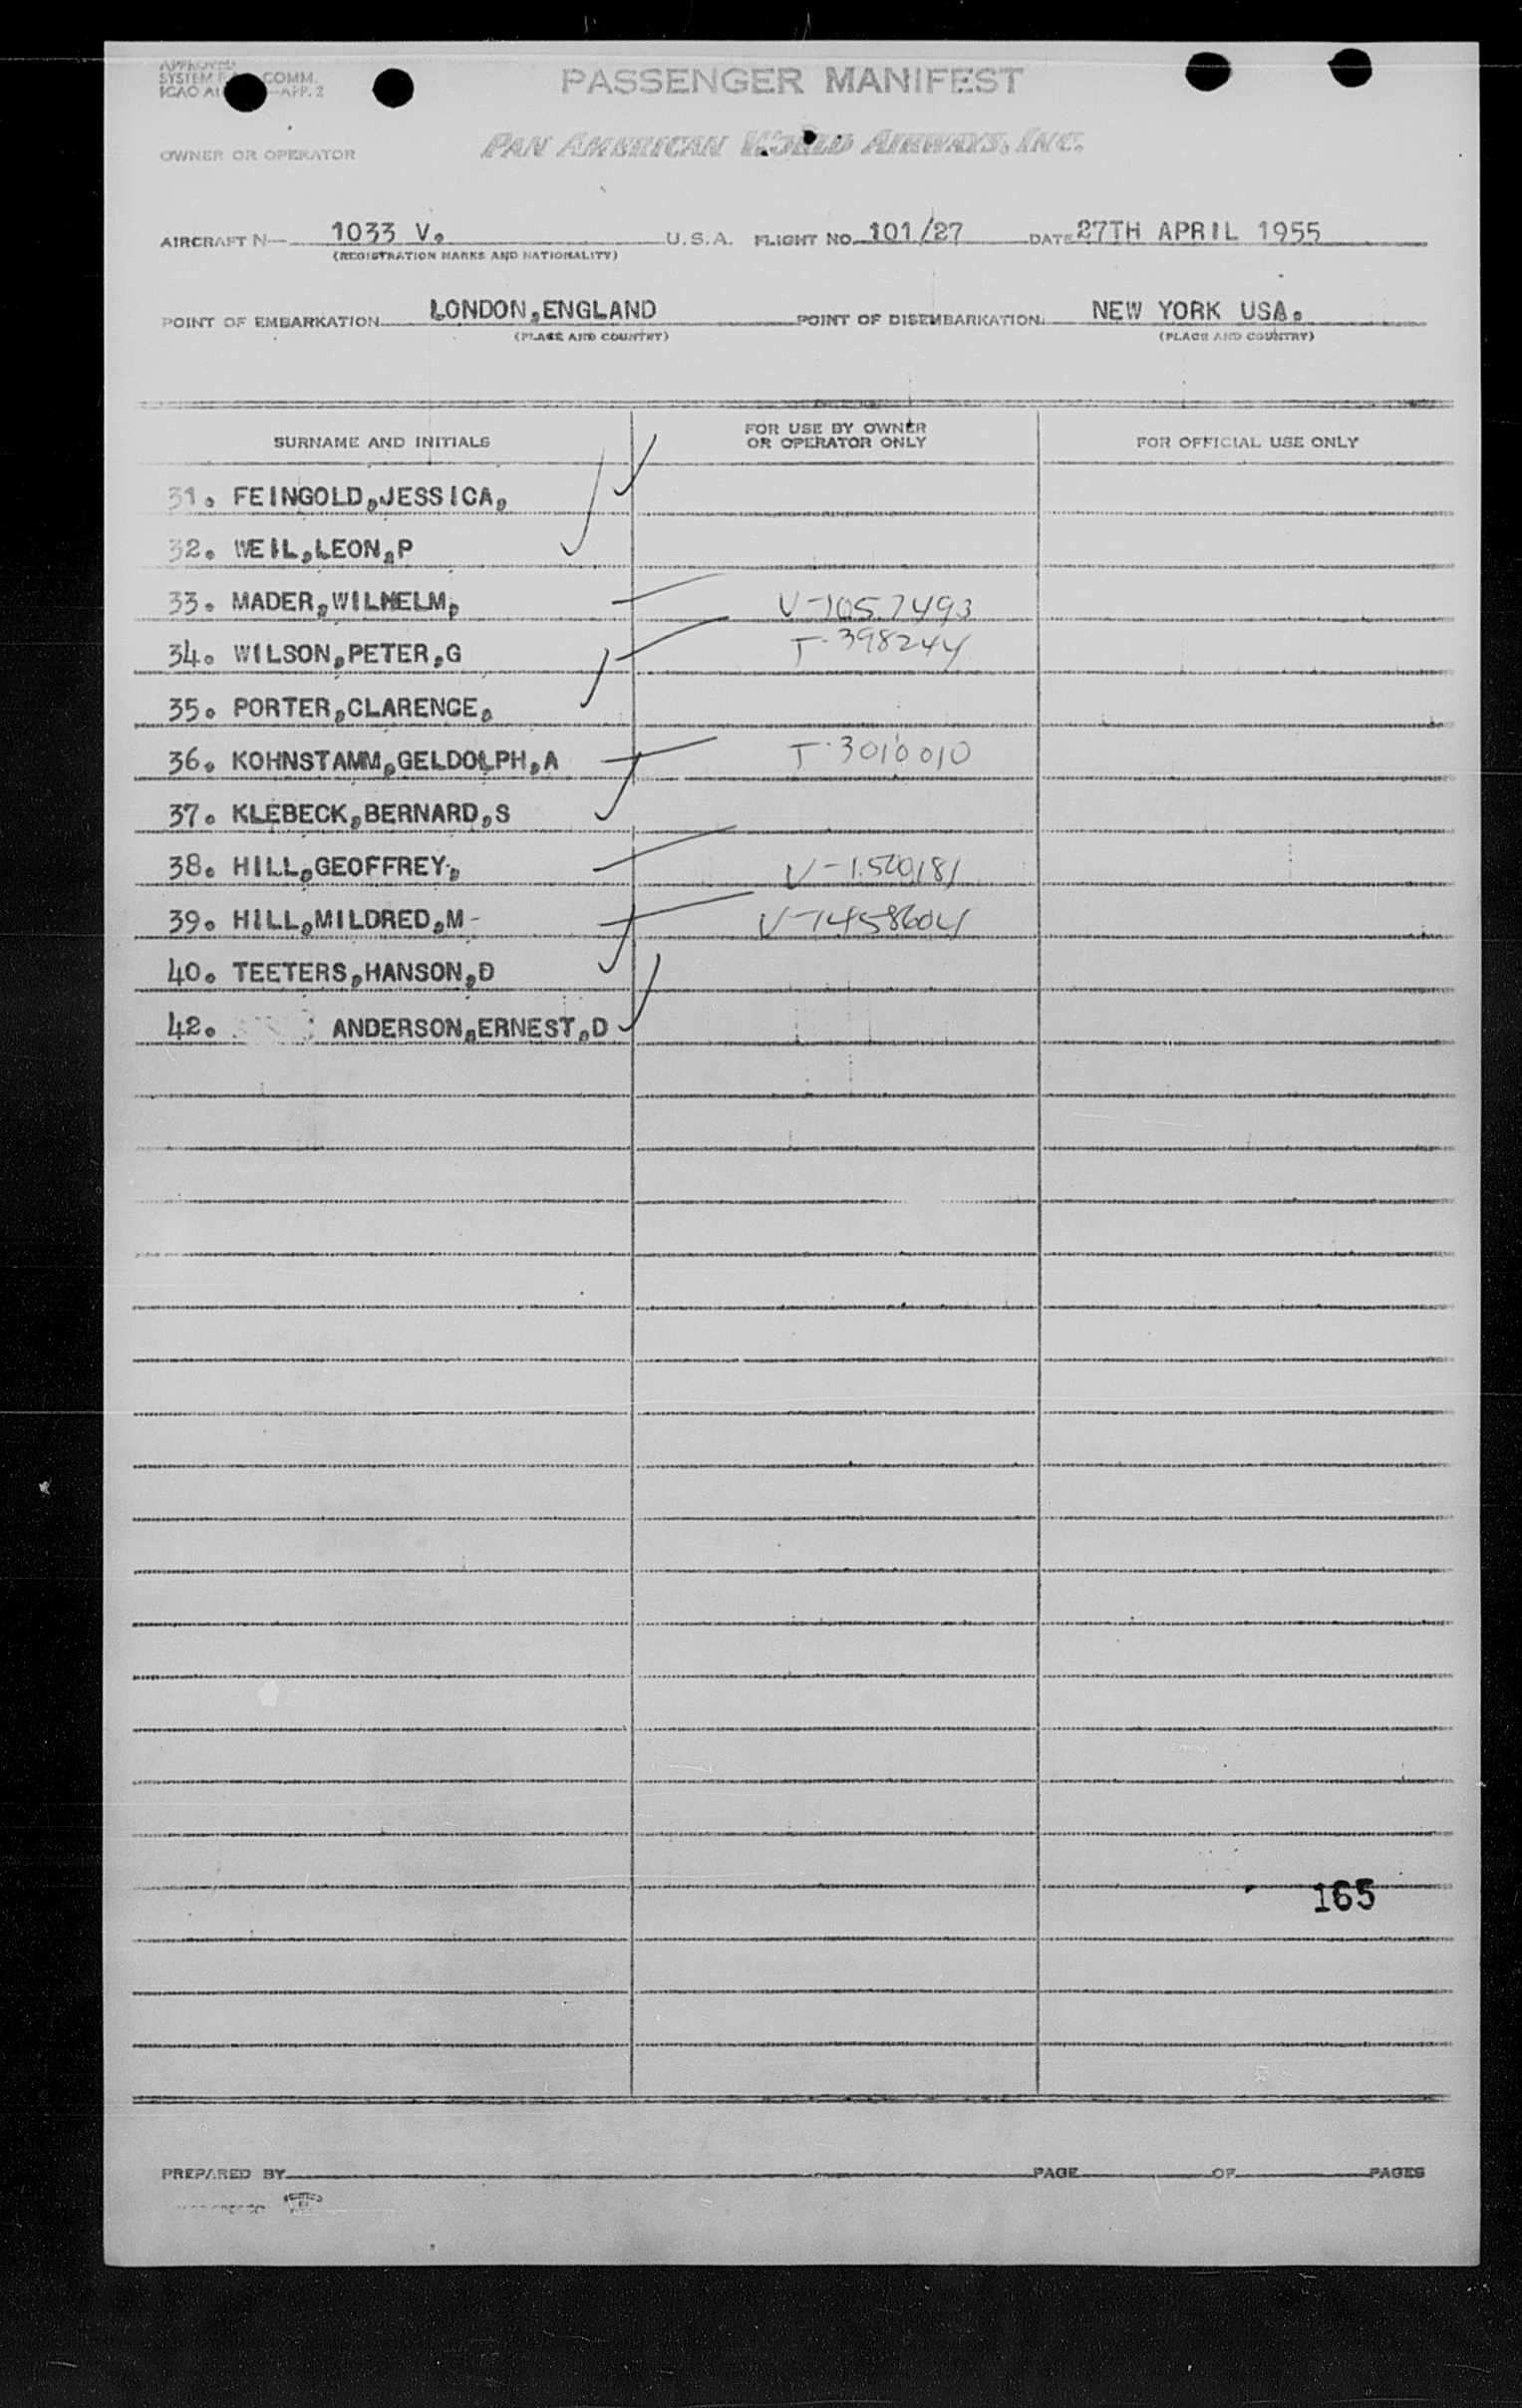 APPROVED
SYSTEM COMM.
ICAO —APP. 2
PASSENGER MANIFEST
OWNER OR OPERATOR PAN AMERICAN WORLD AIRWAYS, INC.
AIRCRAFT N— 1033 V. U.S.A. FLIGHT NO. 101/27 DATE 27TH APRIL 1955
(REGISTRATION MARKS AND NATIONALITY)
POINT OF EMBARKATION LONDON,ENGLAND POINT OF DISEMBARKATION NEW YORK USA.
(PLACE AND COUNTRY) (PLACE AND COUNTRY)
SURNAME AND INITIALS FOR USE BY OWNER OR OPERATOR ONLY FOR OFFICIAL USE ONLY
31. FEINGOLD,JESSICA,
32. WEIL,LEON,P
33. MADER,WILHELM, V-1057493
34. WILSON,PETER,G T-398244
35. PORTER,CLARENCE,
36. KOHNSTAMM,GELDOLPH,A T-3010010
37. KLEBECK,BERNARD,S
38. HILL,GEOFFREY, V-1500181
39. HILL,MILDRED,M- V-1458604
40. TEETERS,HANSON,D
42. ANDERSON,ERNEST,D
165
PREPARED BY PAGE OF PAGES